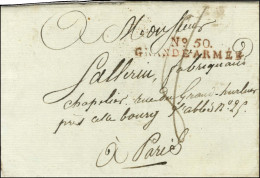 A Monsieur
No. 50.
GRANDE-ARMÉE
Lallerin, fabriquant
chapelier, rue du Grand hurleur
près celle bourg l'abbé No. 25.
à Paris